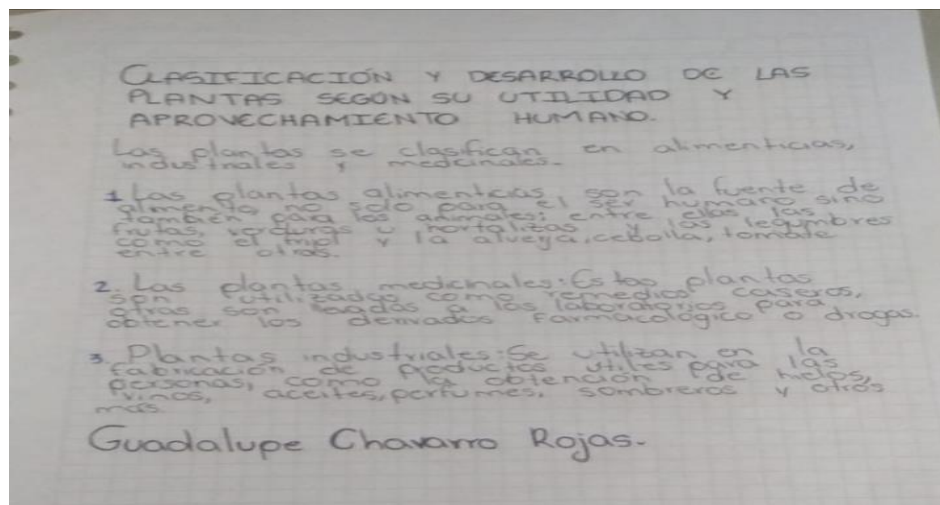 CLASIFICACIÓN Y DESARROLLO DE LAS
PLANTAS SEGÚN SU UTILIDAD Y
APROVECHAMIENTO HUMANO.
Las plantas se clasifican en alimenticias,
industriales y medicinales.
1. Las plantas alimenticias, son la fuente de
alimento no solo para el ser humano sino
también para los animales; entre ellas las
frutas, verduras u hortalizas y las legumbres
como el frijol y la alveja, cebolla, tomate
entre otras.
2. Las plantas medicinales: Estas plantas
son utilizadas como remedios caseros,
otras son llevadas a los laboratorios para
obtener los derivados farmacológico o drogas.
3. Plantas industriales: Se utilizan en la
fabricación de productos útiles para las
personas, como la obtención de hielos,
vinos, aceites, perfumes, sombreros y otros
más.
Guadalupe Chavarro Rojas.